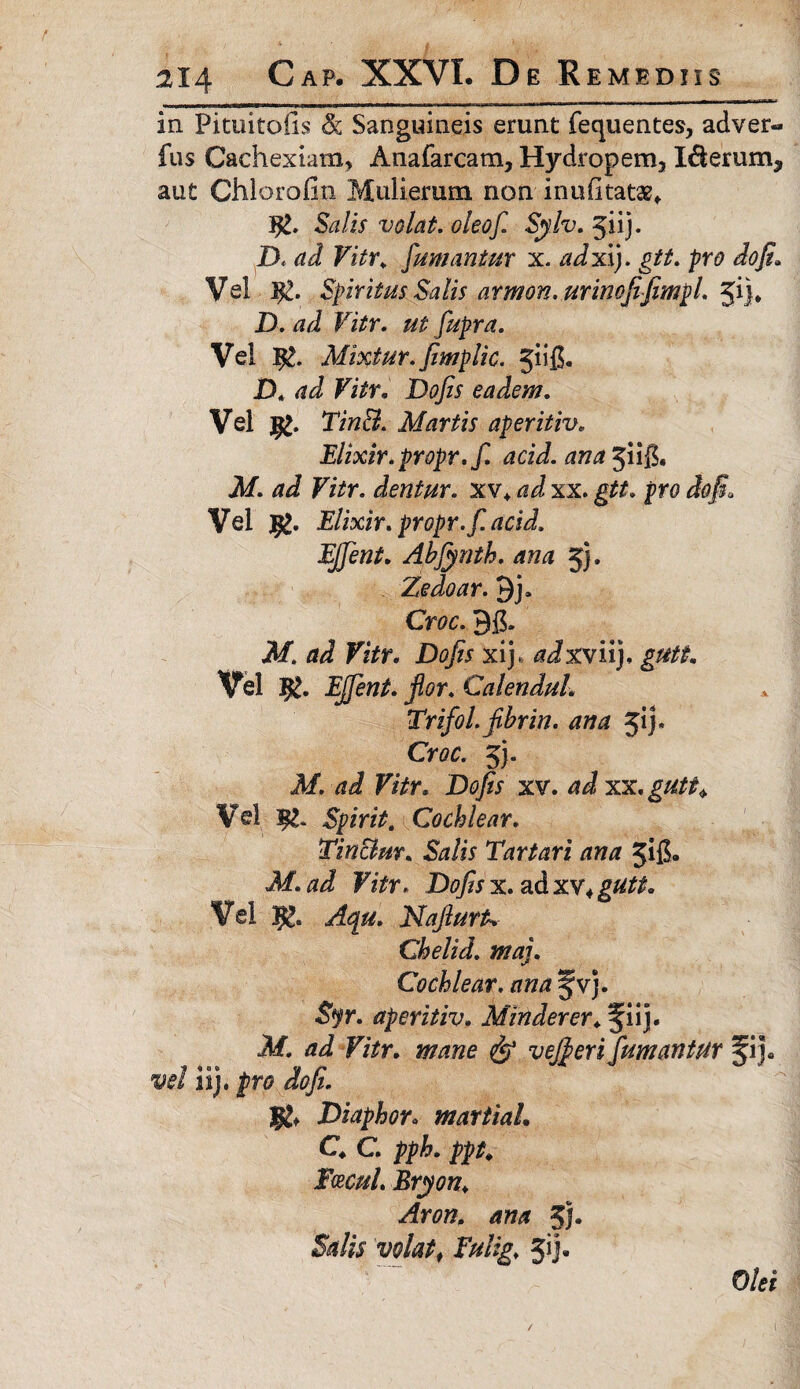 214 Cap. XXVI. De Remediis
in Pituitoſis & Sanguineis erunt ſequentes, adver-
ſus Cachexiam, Anaſarcam, Hydropem, Icterum,
aut Chloroſin Mulierum non inuſitatæ.
℞. Salis volat. oleoſ. Sylv. ʒiij.
D. ad Vitr. ſumantur x. ad xij. gtt. pro doſi.
Vel ℞. Spiritus Salis armon. urinoſi ſimpl. ʒij.
D. ad Vitr. ut ſupra.
Vel ℞. Mixtur. ſimplic. ʒiiß.
D. ad Vitr. Doſis eadem.
Vel ℞. Tinct. Martis aperitiv.
Elixir. propr. ſ. acid. ana ʒiiß.
M. ad Vitr. dentur. xv. ad xx. gtt. pro doſi.
Vel ℞. Elixir. propr. ſ. acid.
Eſſent. Abſynth. ana ʒj.
Zedoar. ℈j.
Croc. ℈ß.
M. ad Vitr. Doſis xij. ad xviij. gutt.
Vel ℞. Eſſent. flor. Calendul.
Trifol. fibrin. ana ʒij.
Croc. ʒj.
M. ad Vitr. Doſis xv. ad xx. gutt.
Vel ℞. Spirit. Cochlear.
Tinctur. Salis Tartari ana ʒiß.
M. ad Vitr. Doſis x. ad xv. gutt.
Vel ℞. Aqu. Naſturt.
Chelid. maj.
Cochlear. ana ℥vj.
Syr. aperitiv. Minderer. ℥iij.
M. ad Vitr. mane & veſperi ſumantur ℥ij.
vel iij. pro doſi.
℞. Diaphor. martial.
C. C. pph. ppt.
Fœcul. Bryon.
Aron. ana ʒj.
Salis volat. Fulig. ʒij.
Olei